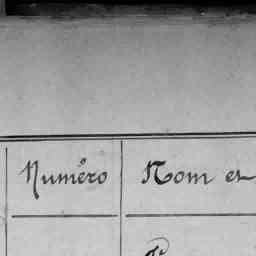 Numéro Nom et